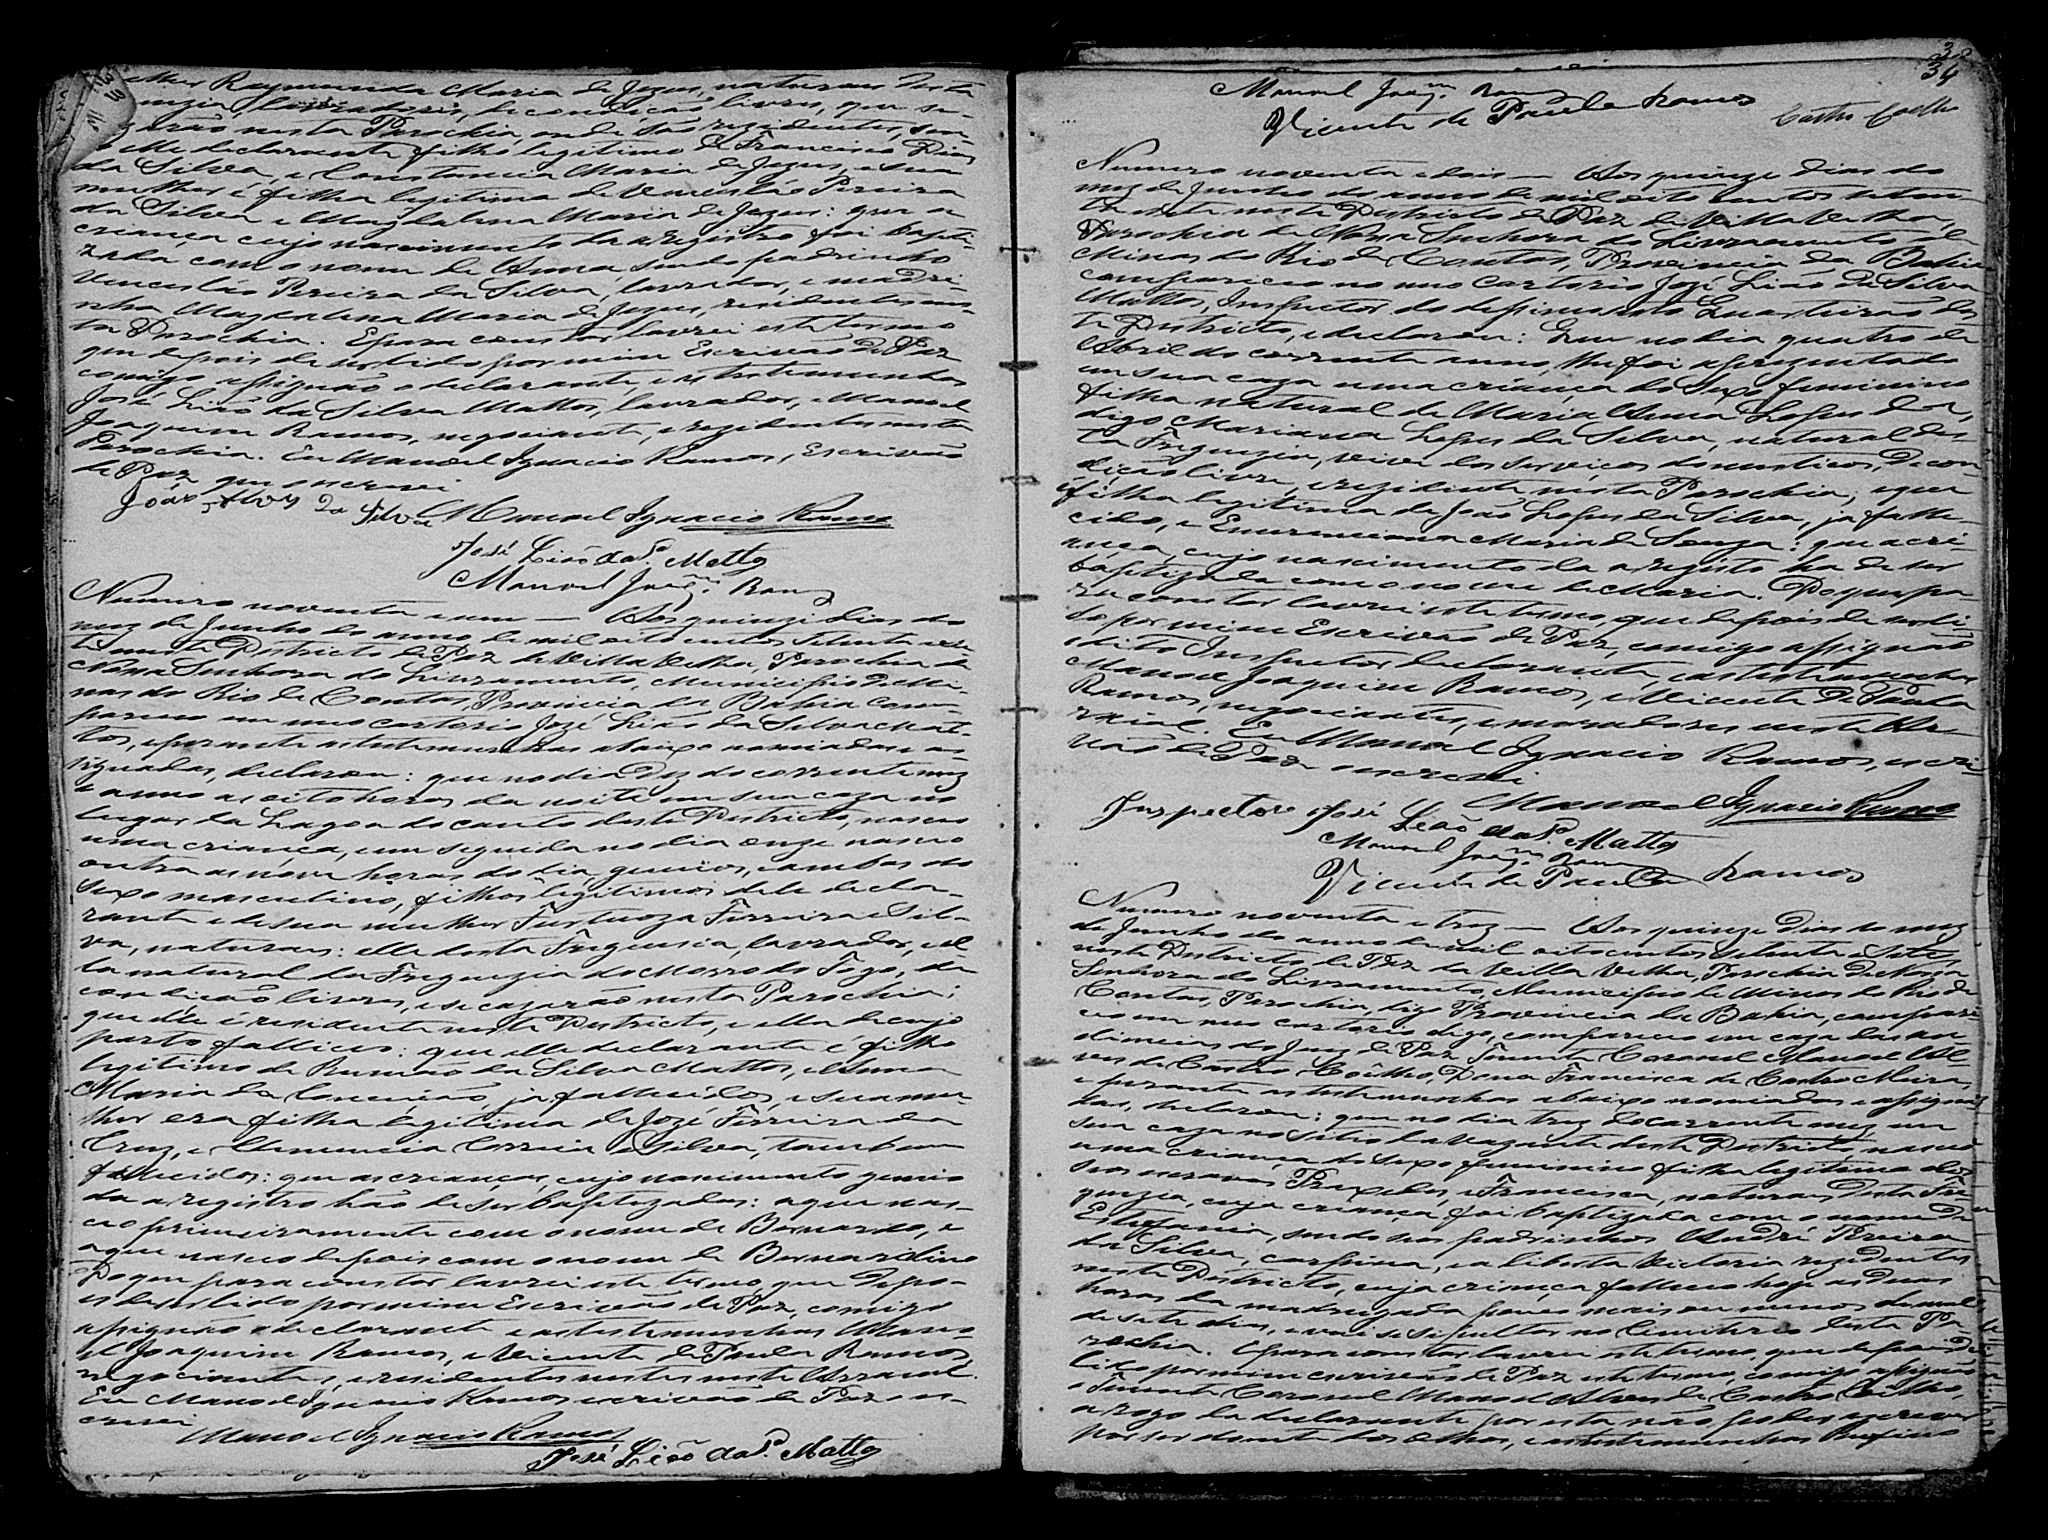 mulher Raymunda Maria de Jezus, naturaes desta
Freguezia, lavradores, de condição livres, que se
cazarão nesta Parochia, onde são rezidentes, sen-
do elle declarante filho legitimo de Francisco Dias
da Silva, e Constancia Maria de Jezus, e sua
mulher é filha legitima de Venceslão Pereira
da Silva e Magdalena Maria de Jezus: que a
criança cujo nascimento da a registro foi bapti-
zada com o nome de Anna sendo padrinho
Venceslão Pereira da Silva, lavrador, e madri-
nha Magdalena Maria de Jezus, rezidentes nes-
ta Parochia. E para constar lavrei este termo
que depois de ser lido por mim Escrivão de Paz
comigo assignão o declarante, e as testemunhas
José Lião da Silva Mattos, lavrador, e Manoel
Joaquim Ramos, negociante, e rezidentes nesta
Parochia. Eu Manoel Ignacio Ramos, Escrivão
de Paz que o escrevi.
João Alves da Silva Manoel Ignacio Ramos
José Lião da Sª Mattos
Manoel Joaqm Ramos
Numero noventa e um — Aos quinze dias do
mez de Junho do anno de mil oito centos setenta e se-
te neste Districto de Paz de Villa Velha, Parochia de
Nossa Senhora do Livramento, Municipio de Mi-
nas do Rio de Contas, Provincia da Bahia com-
pareceo em meu cartorio José Lião da Silva Mat-
tos, e perante as testemunhas abaixo nomiadas e as-
signadas, declarou: que no dia dez do corrente mez
e anno as oito horas da noite em sua caza no
lugar da Lagoa do canto deste Districto, nasceo
uma criança, e em seguida no dia onze nasceo
outra as nove horas do dia, gemios, e ambas do
sexo masculino, filhos legitimos delle decla-
rante e de sua mulher Fustuoza Ferreira e Sil-
va, naturaes: elle desta Freguesia, lavrador, e el-
la natural da Freguezia do Morro do Fogo, de
condição livres, e se cazarão nesta Parochia;
que elle é residente neste Districto, e ella de cujo
parto falliceo: que elle declarante é filho
legitimo de Rumão da Silva Mattos, e Anna
Maria da Conceição, ja fallicidos, e sua mu-
lher era filha legitima de José Ferreira da
Cruz, e Clemencia Correia e Silva, tambem
fallicidos: que as crianças, cujo nascimento gemio
da a registro hão de ser baptizadas: a que nas-
ceo primeiramente com o nome de Bernardo, e
a que nasceo depois com o nome de Bernardino
Do que para constar lavrei este termo, que depo-
is de ser lido por mim Escrivão de Paz, comigo
assignão o declarante e as testemunhas Mano-
el Joaquim Ramos, e Vicente de Paula Ramos
negociantes, e residentes neste Arraial.
Eu Manoel Ignacio Ramos escrivão de Paz o es-
crevi
Manoel Ignacio Ramos
José Lião da Sª Mattos
34
Manoel Joaqm Ramos
Vicente de Paula Ramos
Castro Coelho
Numero noventa e dois — Aos quinze dias do
mez de Junho do anno de mil oito centos seten-
ta e sete neste Districto de Paz de Villa Velha,
Parochia de Nossa Senhora do Livramento de
Minas do Rio de Contas, Provincia da Bahia
compareceo no meu Cartorio José Lião da Silva
Mattos, Inspector do desimo sexto Quarteirão des-
te Districto, e declarou: Que no dia quatro de
Abril do corrente anno, lhe foi aprezentado
em sua caza uma criança do sexo feminino
filha natural de Maria Anna Lopes da,
digo Mariana Lopes da Silva, natural des-
ta Freguezia, vive dos serviços domesticos, de con-
dição livre, e rezidente nesta Parochia; e que
é filha legitima de João Lopes da Silva, ja falle-
cido, e Emerenciana Maria de Souza: que a cri-
ança, cujo nascimento da a registo ha de ser
baptizada com o nome de Maria. Do que pa-
ra constar lavrei este termo, que depois de ser li-
do por mim Escrivão de Paz, comigo assignão
o dito Inspector declarante, e as testemunhas
Manoel Joaquim Ramos, e Vicente de Paula
Ramos, negociantes, e moradores neste Ar-
raial. Eu Manoel Ignacio Ramos, escri-
vão de Paz o escrevi
Manoel Ignacio Ramos
Inspector José Lião da Sª Mattos
Manoel Joaqm Ramos
Vicente de Paula Ramos
Numero noventa e trez — Aos quinze dias do mez
de Junho do anno de mil oito centos setenta e sete,
neste Districto de Paz da Villa Velha, Parochia de Nossa
Senhora do Livramento, Municipio de Minas do Rio de
Contas, Parochia, digo Provincia da Bahia, compare-
ceo em meu cartorio digo, compareceo em caza das au-
diencias do Juiz de Paz Tenente Coronel Manoel Al-
ves de Castro Coêlho, Dona Francisca de Castro Meira,
e perante as testemunhas abaixo nomiadas e assigna-
das, declarou: que no dia trez do corrente mez em
sua caza no sitio da Vazante deste Districto, nasceo
uma criança do sexo feminino filha legitima dos
seos escravos Praxedes e Francisca, naturaes desta Fre-
guezia, cuja criança foi baptizada com o nome de
Estefania, sendo seos padrinhos André Pereira
da Silva, carpina, e a liberta Victoria rezidentes
neste Districto, cuja criança falleceo hoje as duas
horas da madrugada pouco mais ou menos de mal
de sete dias, e vai se sepultar no Cemiterio desta Pa-
rochia. E para constar lavrei este termo, que depois de
lido por mim escrivão de Paz este termo, comigo assignão
o Tenente Coronel Manoel Alves de Castro Coelho,
a rogo da declarante por esta não poder escrever
por ser doente dos olhos, e as testemunhas Rufino